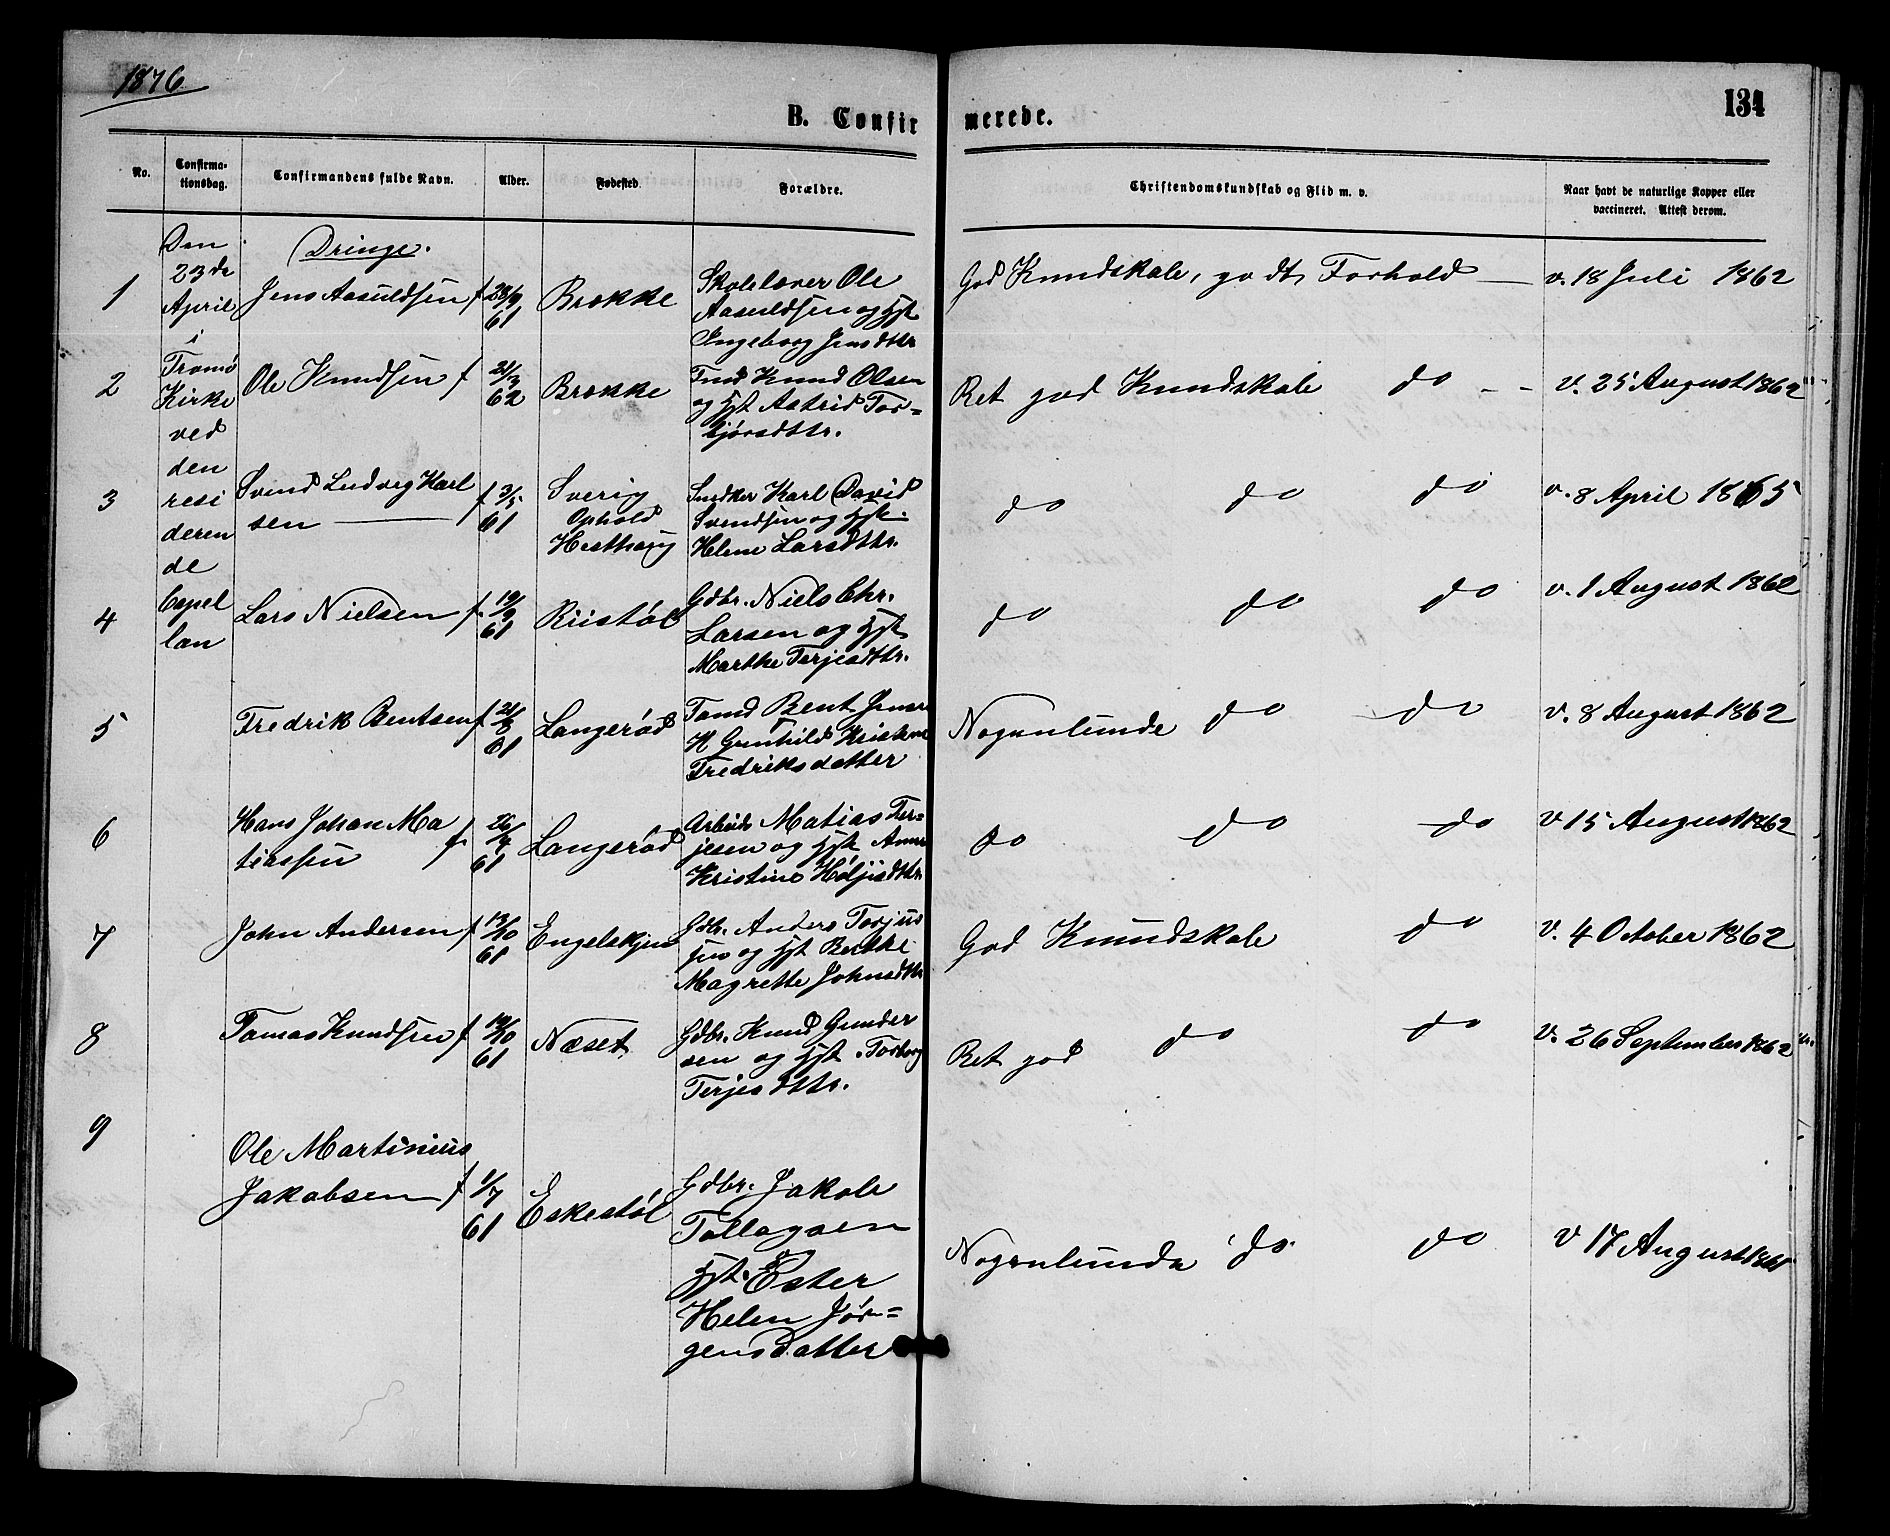 1876
B. Confirmerede.
134
No.
Confirma-
tionsdag.
Confirmandens fulde Navn.
Alder.
Fødested.
Forældre.
Christendomskundskab og Flid m. v.
Naar havt de naturlige Kopper eller
vaccineret. Attest derom.
Den
23de
April
i
Tromø
Kirke
ved
den
resi
deren
de
Capel
lan
Drenge.
1 Jens Aasuldsen f 28/9 61 Brække
Skolelærer Ole
Aasuldsen og Hst
Ingeborg Jensdttr
God Kundskab, godt Forhold — v. 18 Juli 1862
2 Ole Knudsen f 21/3 62 Brække
Tmd Knud Olsen
og Hst Astrid Tor=
bjørsdttr.
Ret god Kundskab do - - v. 25 August 1862
3 Svend Ludvig Karl
sen — f 3/5 61
Sverig
Ophold
Snedker Karl David
Svendsen og Hst.
Helene Larsdttr.
do do do v. 8 April 1865
4 Lars Nielsen f. 19/9 61 Riistøl
Gdbr. Niels Chr.
Larsen og Hst
Marthe Terjesdttr.
do do do v. 1 August 1862
5 Fredrik Bentsen f 21/8 61 Langerød
Tømd Bent Jensen
H Gunhild Kristene
Fredriksdatter
Nogenlunde do do v. 8 August 1862
6 Hans Johan Ma
tiassen f. 26/7 61 Langerød
Arbeids Matias Ter=
jesen og Hst Anne
Kristine Høljesdttr.
do do do v 15 August 1862
7 John Andersen f 13/10 61 Engelskjøn
Gdbr. Anders Torjus
sen og Hst Berthe
Magrette Johnsdttr
God Kundskab do v. 4 October 1862
8 Tomas Knudsen f 19/10 61 Næset
Gdbr. Knud Gunder
sen og Hst. Torborg
Terjesdttr.
Ret god do do v. 26 September 1862
9 Ole Martinius
Jakobsen f 1/7 61 Eskestøl
Gdbr. Jakob
Tollagsen
Hst. Ester
Helen Jør=
gensdatter
Nogenlunde do. do v 17 August 1861